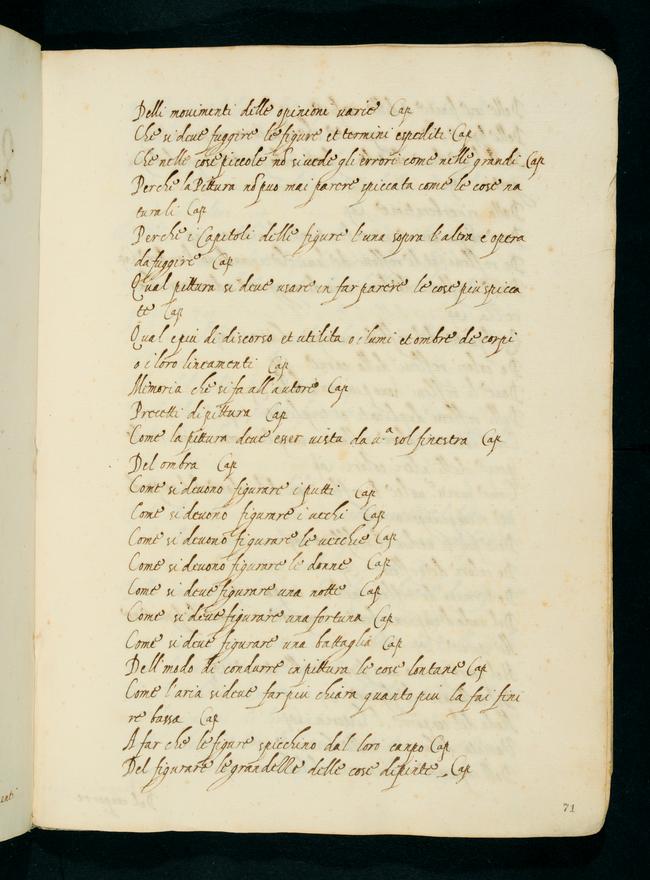 Delli movimenti delle opinioni varie Cap
Che si deve fuggire le figure et termini espediti Cap
Che nelle cose piccole nõ si vede gli errori come nelle grandi Cap
Perche la Pittura nõ puo mai parere spiccata come le cose na
turali Cap
Perche i Capitoli delle figure l'una sopra l'altra e opera
da fuggire Cap
Qual pittura si deve usare in far parere le cose piu spicca
te Cap
Qual e piu di discorso et utilita o i lumi et ombre de corpi
o i loro lineamenti Cap
Memoria che si fa all'autore Cap
Precetti di pittura Cap
Come la pittura deve esser vista da u.ª sol finestra Cap
Del ombra Cap
Come si devono figurare i putti Cap
Come si devono figurare i vecchi Cap
Come si devono figurare le vecchie Cap
Come si devono figurare le donne Cap
Come si deve figurare una notte Cap
Come si deve figurare una fortuna Cap
Come si deve figurare una battaglia Cap
Dell'modo di condurre in pittura le cose lontane Cap
Come l'aria si deve far piu chiara quanto piu la fai fini
re bassa Cap
A far che le figure spicchino dal loro canpo Cap
Del figurare le grandelle delle cose dipinte Cap
71